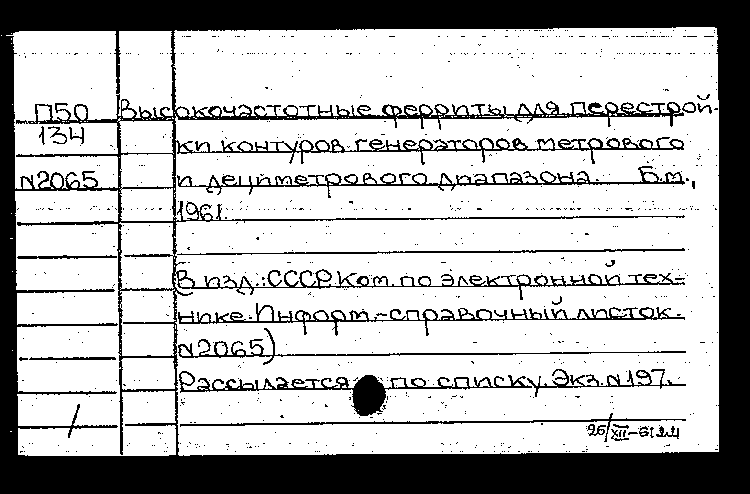 П50 Высокочастотные ферриты для перестрой-
134
ки контуров генераторов метрового
N2065 и дециметрового диапазона. Б.м.,
1961.
(В изд.: СССР. Ком. по электронной тех-
нике. Информ.-справочный листок.
N2065)
Рассылается по списку. Экз. N197.
26/XII-61